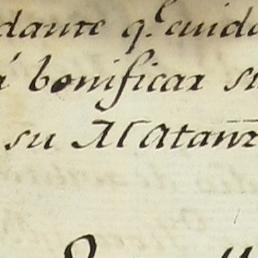 dante q.e cuida
á bonificar su
su Matanz